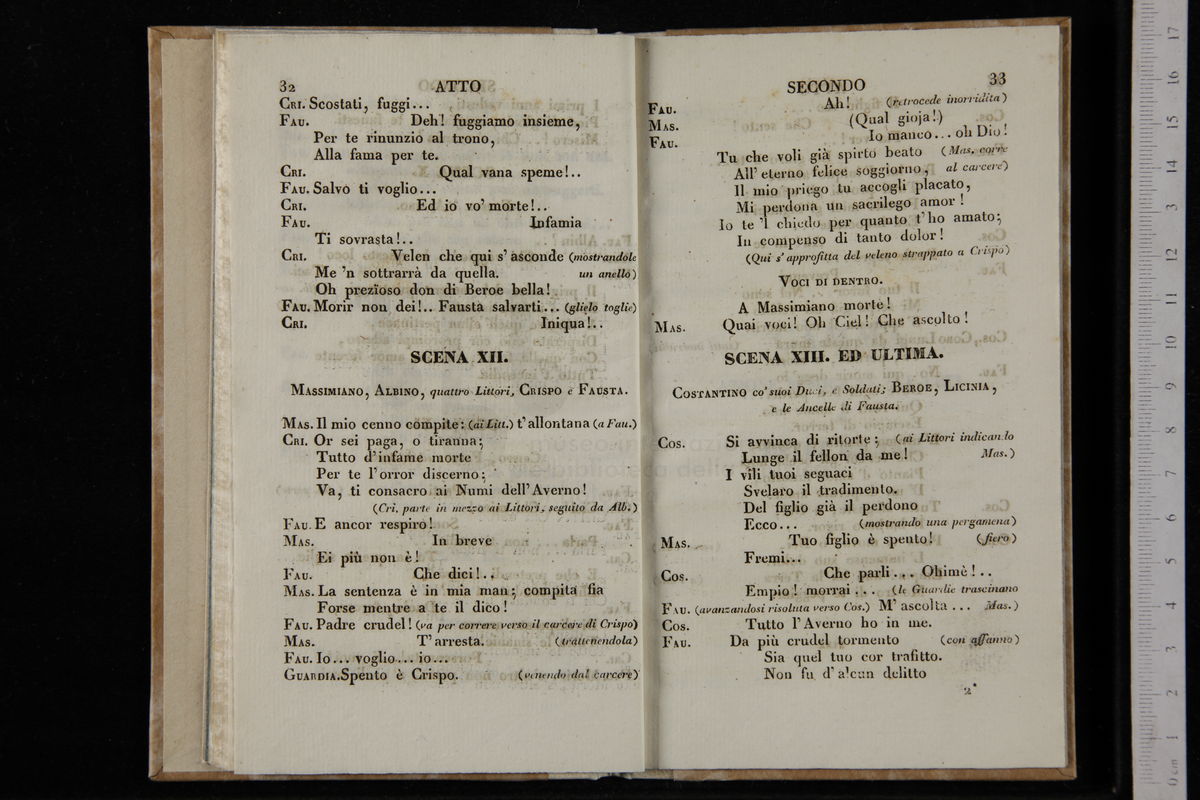 32 ATTO
CRI. Scostati, fuggi...
FAU. Deh! fuggiamo insieme,
Per te rinunzio al trono,
Alla fama per te.
CRI. Qual vana speme!..
FAU. Salvo ti voglio...
CRI. Ed io vo' morte!..
FAU. Infamia
Ti sovrasta!..
CRI. Velen che qui s' asconde (mostrandole
Me 'n sottrarrà da quella. un anello)
Oh prezïoso don di Beroe bella!
FAU. Morir non dei!.. Fausta salvarti... (glielo toglie)
CRI. Iniqua!..
SCENA XII.
MASSIMIANO, ALBINO, quattro Littori, CRISPO e FAUSTA.
MAS. Il mio cenno compite: (ai Litt.) t' allontana (a Fau.)
CRI. Or sei paga, o tiranna;
Tutto d' infame morte
Per te l' orror discerno;
Va, ti consacro ai Numi dell' Averno!
(Cri. parte in mezzo ai Littori, seguito da Alb.)
FAU. E ancor respiro!
MAS. In breve
Ei più non è!
FAU. Che dici!..
MAS. La sentenza è in mia man; compita fia
Forse mentre a te il dico!
FAU. Padre crudel! (va per correre verso il carcere di Crispo)
MAS. T' arresta. (trattenendola)
FAU. Io... voglio... io...
GUARDIA. Spento è Crispo. (venendo dal carcere)
SECONDO 33
FAU. Ah! (retrocede inorridita)
MAS. (Qual gioja!)
FAU. Io manco... oh Dio!
Tu che voli già spirto beato (Mas. corre
All' eterno felice soggiorno, al carcere)
Il mio priego tu accogli placato,
Mi perdona un sacrilego amor!
Io te 'l chiedo per quanto t' ho amato;
In compenso di tanto dolor!
(Qui s' approfitta del veleno strappato a Crispo)
VOCI DI DENTRO.
A Massimiano morte!
MAS. Quai voci! Oh Ciel! Che ascolto!
SCENA XIII. ED ULTIMA.
COSTANTINO co' suoi Duci, e Soldati; BEROE, LICINIA,
e le Ancelle di Fausta.
COS. Si avvinca di ritorte; (ai Littori indicando
Lunge il fellon da me! Mas.)
I vili tuoi seguaci
Svelaro il tradimento.
Del figlio già il perdono
Ecco... (mostrando una pergamena)
MAS. Tuo figlio è spento! (fiero)
Fremi...
COS. Che parli... Ohimè!..
Empio! morrai... (le Guardie trascinano
FAU. (avanzandosi risoluta verso Cos.) M' ascolta... Mas.)
COS. Tutto l' Averno ho in me.
FAU. Da più crudel tormento (con affanno)
Sia quel tuo cor trafitto.
Non fu d' alcun delitto
2*